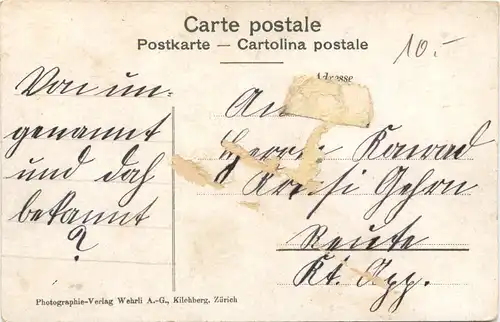 Carte postale
Postkarte — Cartolina postale
10.-
Adresse
Von un-
genannt
und doh
bekannt
?
An
Herrn Konrad
Gehrn
Reute
Kt. App.
Photographie-Verlag Wehrli A.-G., Kilchberg, Zürich